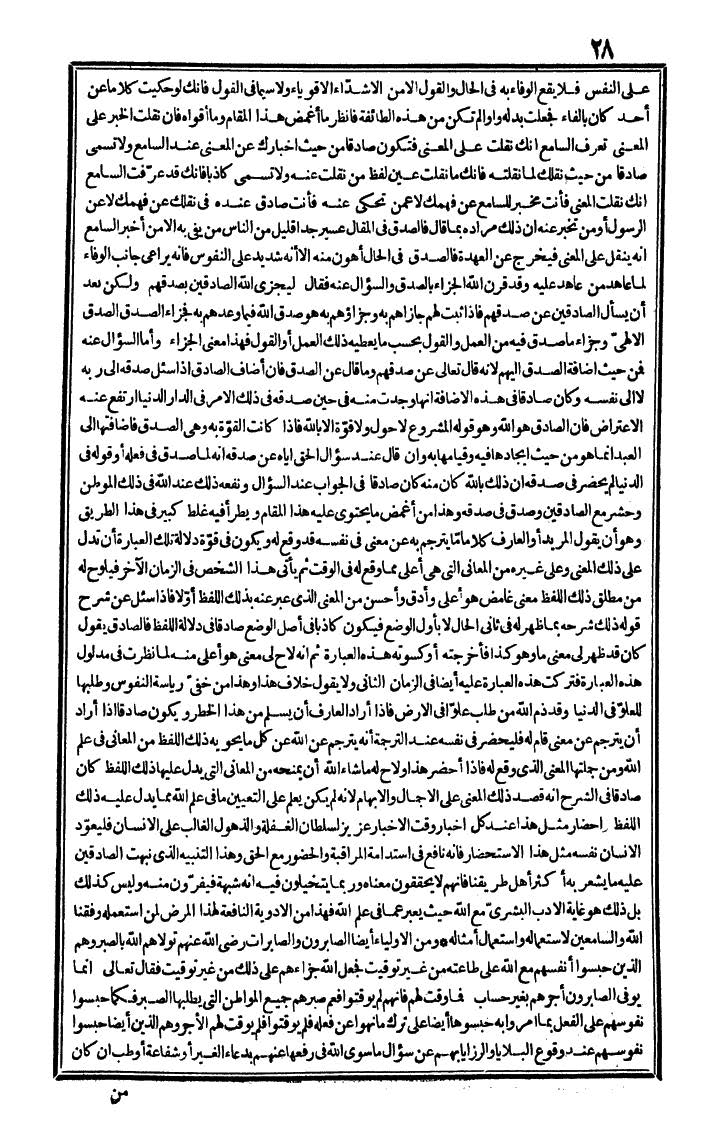 ٢٨
على النفس فلا يقع الوفاء به فى الحال والقول الا من الاشداء الاقوياء ولا سيما فى القول فانك لو حكيت كلاما عن
أحد كان بالفاء فجعلت بدله واوا لم تكن من هذه الطائفة فانظر ما أغمض هذا المقام وما أقواه فان نقلت الخبر على
المعنى تعرف السامع انك نقلت على المعنى فتكون صادقا من حيث اخبارك عن المعنى عند السامع ولا تسمى
صادقا من حيث نقلك لما نقلته فانك ما نقلت عين لفظ من نقلت عنه ولا تسمى كاذبا فانك قد عرّفت السامع
انك نقلت المعنى فأنت مخبر للسامع عن فهمك لا عمن تحكى عنه فأنت صادق عنده فى نقلك عن فهمك لا عن
الرسول أو من تخبر عنه ان ذلك مراده بما قال فالصدق فى المقال عسير جدا قليل من الناس من يفى به الا من أخبر السامع
انه ينقل على المعنى فيخرج عن العهدة فالصدق فى الحال أهون منه الا أنه شديد على النفوس فانه يراعى جانب الوفاء
لما عاهد من عاهد عليه وقد قرن الله الجزاء بالصدق والسؤال عنه فقال ليجزى الله الصادقين بصدقهم ولكن بعد
أن يسأل الصادقين عن صدقهم فاذا ثبت لهم جازاهم به وجزاؤهم به هو صدق الله فيما وعدهم به فجزاء الصدق الصدق
الالهىّ وجزاء ما صدق فيه من العمل والقول بحسب ما يعطيه ذلك العمل أو القول فهذا معنى الجزاء وأما السؤال عنه
فمن حيث اضافة الصدق اليهم لانه قال تعالى عن صدقهم وما قال عن الصدق فان أضاف الصادق اذا سئل صدقه الى ربه
لا الى نفسه وكان صادقا فى هذه الاضافة انها وجدت منه فى حين صدقه فى ذلك الامر فى الدار الدنيا ارتفع عنه
الاعتراض فان الصادق هو الله وهو قوله المشروع لا حول ولا قوة الا بالله فاذا كانت القوّة به وهى الصدق فاضافتها الى
العبد انما هو من حيث ايجادها فيه وقيامها به وان قال عند سؤال الحق اياه عن صدقه انه لما صدق فى فعله أو قوله فى
الدنيا لم يحضر فى صدقه ان ذلك بالله كان منه كان صادقا فى الجواب عند السؤال ونفعه ذلك عند الله فى ذلك الموطن
وحشر مع الصادقين وصدق فى صدقه وهذا من أغمض ما يحتوى عليه هذا المقام ويطرأ فيه غلط كبير فى هذا الطريق
وهو أن يقول المريد أو العارف كلاما مّا يترجم به عن معنى فى نفسه قد وقع له ويكون فى قوّة دلالة تلك العبارة أن تدل
على ذلك المعنى وعلى غيره من المعانى التى هى أعلى مما وقع له فى الوقت ثم يأتى هذا الشخص فى الزمان الآخر فيلوح له
من مطلق ذلك اللفظ معنى غامض هو أعلى وأدق وأحسن من المعنى الذى عبر عنه بذلك اللفظ أوّلا فاذا سئل عن شرح
قوله ذلك شرحه بما ظهر له فى ثانى الحال لا بأول الوضع فيكون كاذبا فى أصل الوضع صادقا فى دلالة اللفظ فالصادق يقول
كان قد ظهر لى معنى ما وهو كذا فأخرجته أو كسوته هذه العبارة ثم انه لاح لى معنى هو أعلى منه لما نظرت فى مدلول
هذه العبارة فتركت هذه العبارة عليه أيضا فى الزمان الثانى ولا يقول خلاف هذا وهذا من خفىّ رياسة النفوس وطلبها
للعلوّ فى الدنيا وقد ذم الله من طلب علوّا فى الارض فاذا أراد العارف أن يسلم من هذا الخطر ويكون صادقا اذا أراد
أن يترجم عن معنى قام له فليحضر فى نفسه عند الترجمة أنه يترجم عن الله عن كل ما يحويه ذلك اللفظ من المعانى فى علم
الله ومن جملتها المعنى الذى وقع له فاذا أحضر هذا ولاح له ما شاء الله أن يمنحه من المعانى التى يدل عليها ذلك اللفظ كان
صادقا فى الشرح انه قصد ذلك المعنى على الاجمال والابهام لانه لم يكن يعلم على التعيين ما فى علم الله مما يدل عليه ذلك
اللفظ واحضار مثل هذا عند كل اخبار وقت الاخبار عزيز لسلطان الغفلة والذهول الغالب على الانسان فليعوّد
الانسان نفسه مثل هذا الاستحضار فانه نافع فى استدامة المراقبة والحضور مع الحق وهذا التنبيه الذى نبهت الصادقين
عليه ما يشعر به أكثر أهل طريقنا فانهم لا يحققون معناه وربما يتخيلون فيه انه شبهة فيفرّون منه وليس كذلك
بل ذلك هو غاية الادب البشرىّ مع الله حيث يعبر عما فى علم الله فهذا من الادوية النافعة لهذا المرض لمن استعمله وفقنا
الله والسامعين لاستعماله واستعمال أمثاله * ومن الاولياء أيضا الصابرون والصابرات رضى الله عنهم تولاهم الله بالصبر وهم
الذين حبسوا أنفسهم مع الله على طاعته من غير توقيت فجعل الله جزاءهم على ذلك من غير توقيت فقال تعالى انما
يوفى الصابرون أجرهم بغير حساب فما وقت لهم فانهم لم يوقتوا فعم صبرهم جميع المواطن التى يطلبها الصبر فكما حبسوا
نفوسهم على الفعل بما امروا به حبسوها أيضا على ترك ما نهوا عن فعله فلم يوقتوا فلم يوقت لهم الأجر وهم الذين أيضا حبسوا
نفوسهم عند وقوع البلايا والرزايا بهم عن سؤال ما سوى الله فى رفعها عنهم بدعاء الغير أو شفاعة أو طب ان كان
من